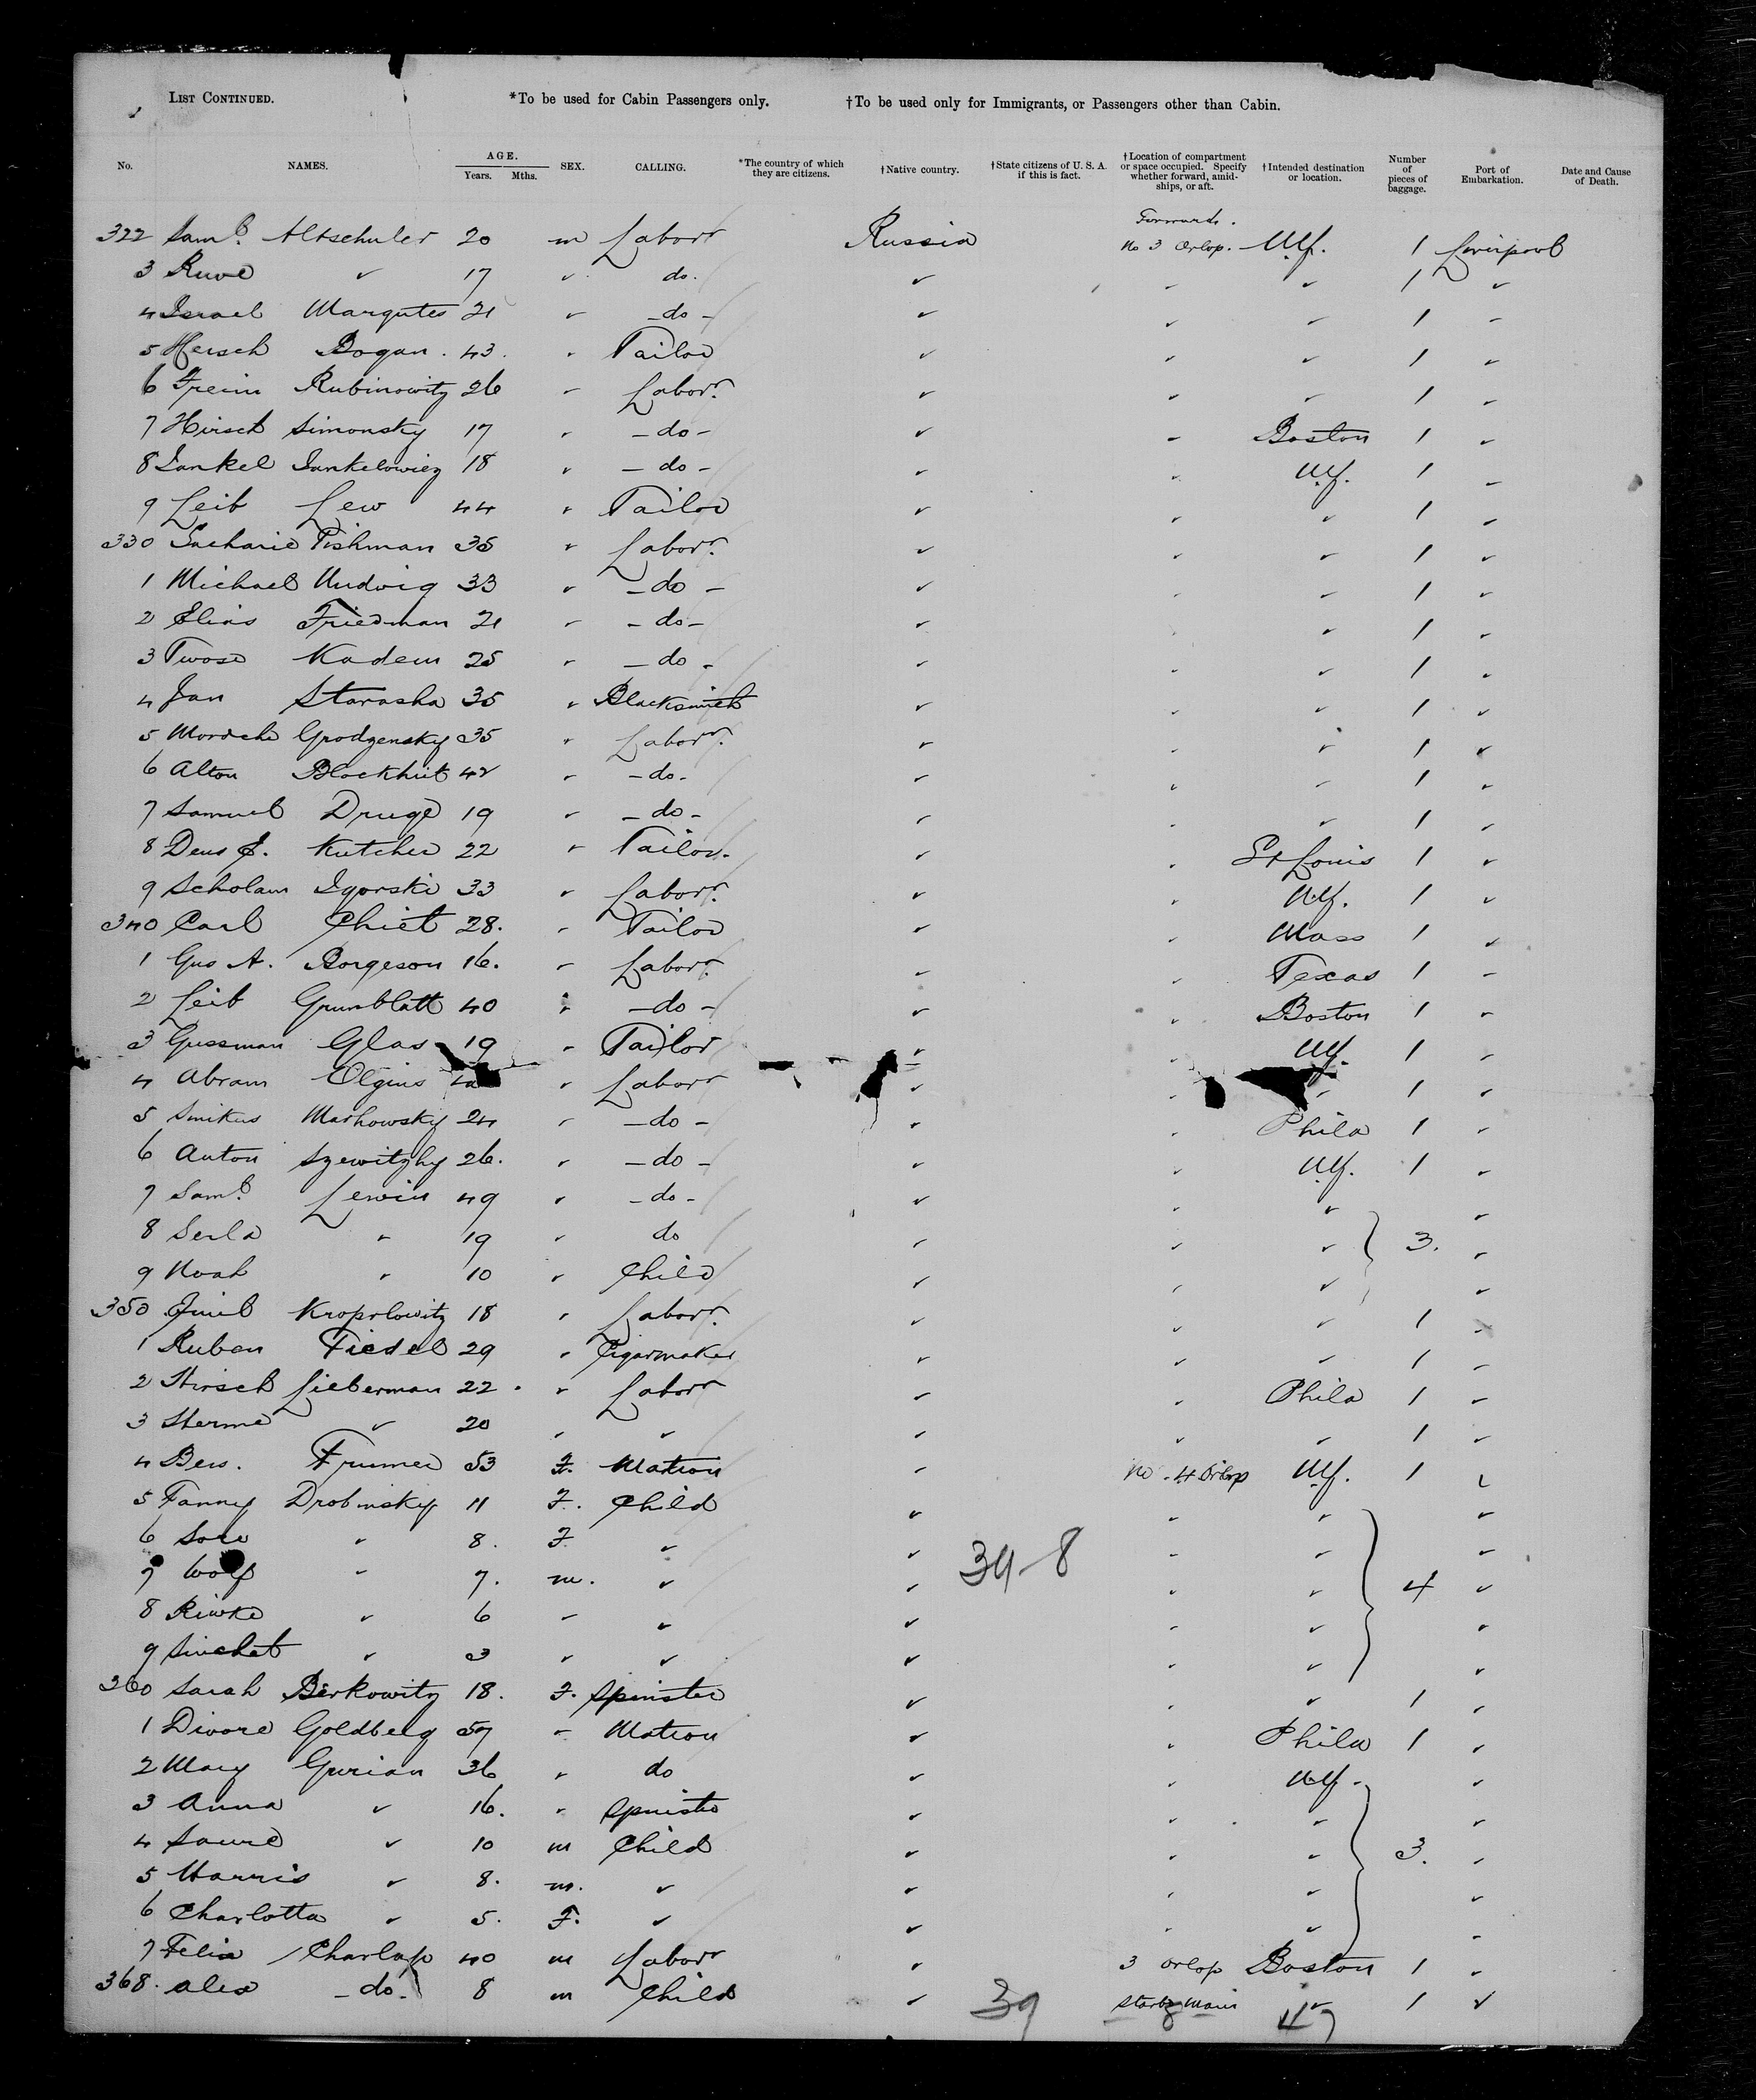 LIST CONTINUED. *To be used for Cabin Passengers only. †To be used only for Immigrants, or Passengers other than Cabin.
No. NAMES. AGE. Years. Mths. SEX. CALLING. *The country of which they are citizens. †Native country. †State citizens of U. S. A. if this is fact. †Location of compartment or space occupied. Specify whether forward, amidships, or aft. †Intended destination or location. Number of pieces of baggage. Port of Embarkation. Date and Cause of Death.
Forwards.
322 Saml. Altschuler 20 m Labor Russia No 3 Orlop. N.Y. 1 Liverpool
3 Ruve " 17 " do. " " " 1 "
4 Israel Margutes 21 " -do- " " " 1 "
5 Hersch Bogan. 43. " Tailor " " " 1 "
6 Rubinowitz 26 " Labor. " " " 1 "
7 Hirsch Simonsky 17 " -do- " " Boston 1 "
8 Jankel Jankelowicz 18 " -do- " " N.Y. 1 "
9 Leib Lew 44 " Tailor " " " 1 "
330 Sacharie Fishman 35 " Labor. " " " 1 "
1 Michael Hudwig 33 " -do- " " " 1 "
2 Elias Friedman 21 " -do- " " " 1 "
3 Kadem 25 " -do- " " " 1 "
4 Jan Starasha 35 " Blacksmith " " " 1 "
5 Mordche Grodzensky 35 " Labor. " " " 1 "
6 Alton Blockhut 42 " -do- " " " 1 "
7 Samuel Druge 19 " -do- " " " 1 "
8 Kutcher 22 " Tailor. " " St Louis 1 "
9 Scholam Igorski 33 " Labor. " " N.Y. 1 "
340 Carl Chiet 28. " Tailor " " Mass 1 "
1 Gus A. Borgeson 16. " Labor. " " Texas 1 "
2 Leib Grunblatt 40 " -do- " " Boston 1 "
3 Gussman Glas 19 " Tailor " " N.Y. 1 "
4 Abram Olgins " Labor " " " 1 "
5 Smikus Markowsky 24 " -do- " " Phila 1 "
6 Anton Szewitzhy 26. " -do- " " N.Y. 1 "
7 Saml. Lewin 49 " -do- " " " "
8 Serla " 19 " do " " " 3. "
9 Noah " 10 " Child " " " "
350 Kroprlowitz 18 " Labor. " " " 1 "
1 Ruben Fiedel 29 " Cigarmaker " " " 1 "
2 Hirsch Lieberman 22. " Labor " " Phila 1 "
3 Herme " 20 " " " " " 1 "
4 Bers. Frumer 53 F. Matron " No. 4 Orlop N.Y. 1 "
5 Fanny Drobinsky 11 F. Child " " " "
6 Sore " 8. F. " " " " "
7 Wolf " 7. m. " " 39-8 " " 4 "
8 Riwke " 6 " " " " " "
9 " 3 " " " " " "
360 Sarah Berkowitz 18. F. Spinster " " " 1 "
1 Divore Goldberg 57 " Matron " " Phila 1 "
2 Mary Gurian 36 " do " " N.Y. "
3 Anna " 16. " Spinster " " " "
4 " 10 m Child " " " 3. "
5 Harris " 8. m. " " " " "
6 Charlotta " 5. F. " " " " "
7 Felix Charlap 40 m Labor " 3 Orlop Boston 1 "
368. Alex -do- 8 m Child " 39 " 1 "
47